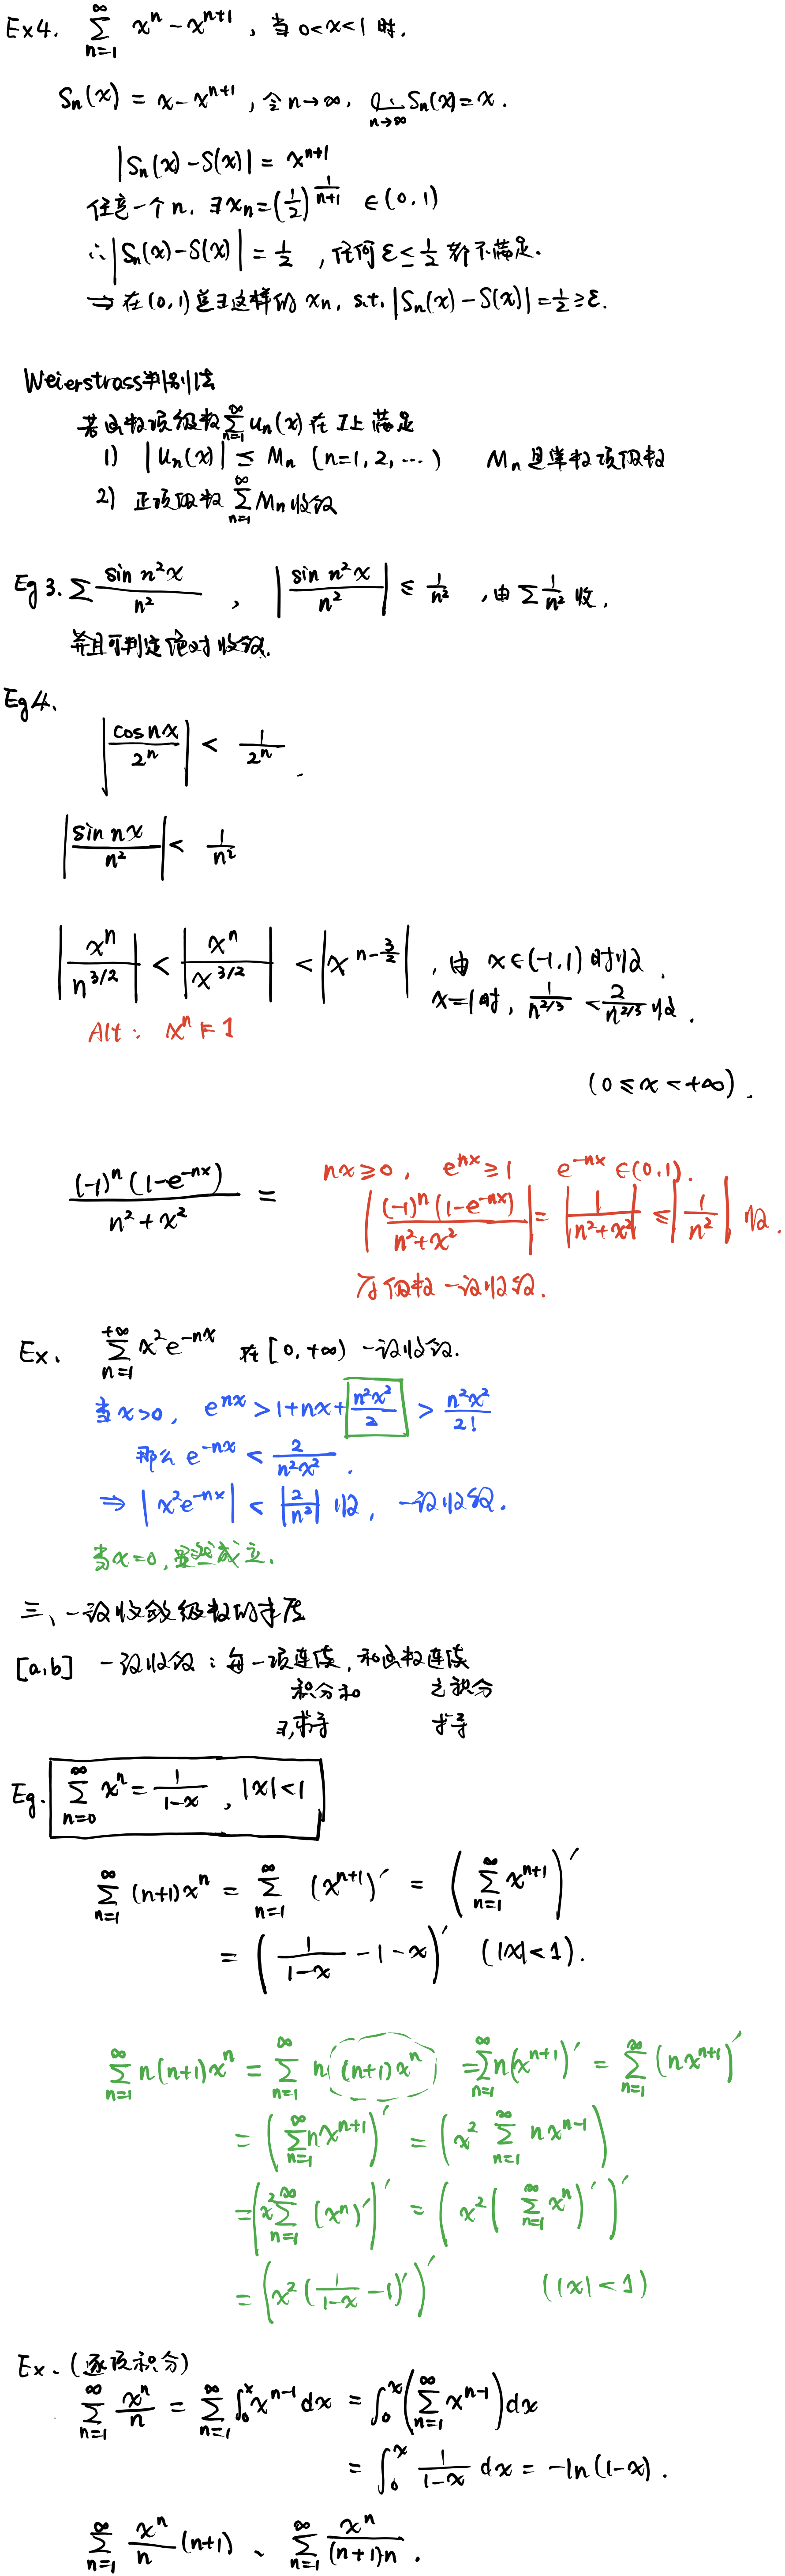 Ex4. $\sum_{n=1}^{\infty} x^n - x^{n+1}$ , 当 0<x<1 时.
$S_n(x) = x - x^{n+1}$ , 令 n→∞, $\lim_{n\to\infty} S_n(x) = x$ .
$|S_n(x) - S(x)| = x^{n+1}$
任意一个 n, ∃ $x_n = (\frac{1}{2})^{\frac{1}{n+1}}$ ∈ (0,1)
∴ $|S_n(x) - S(x)| = \frac{1}{2}$ , 任何 $ε ≤ \frac{1}{2}$ 都不满足.
⇒ 在 (0,1) 总∃这样的 $x_n$, s.t. $|S_n(x) - S(x)| = \frac{1}{2} ≥ ε$.
Weierstrass判别法
若函数项级数 $\sum_{n=1}^{\infty} u_n(x)$ 在 I上 满足
1) $|u_n(x)| ≤ M_n$ (n=1,2,⋯) $M_n$ 是常数项级数
2) 正项级数 $\sum_{n=1}^{\infty} M_n$ 收敛
Eg 3. $\sum \frac{\sin n^2 x}{n^2}$ , $|\frac{\sin n^2 x}{n^2}| ≤ \frac{1}{n^2}$ , 由 $\sum \frac{1}{n^2}$ 收,
并且可判定绝对收敛.
Eg 4.
$|\frac{\cos nx}{2^n}| < \frac{1}{2^n}$ .
$|\frac{\sin nx}{n^2}| < \frac{1}{n^2}$
$|\frac{x^n}{n^{3/2}}| < |\frac{x^n}{x^{3/2}}| < |x^{n-\frac{3}{2}}|$ , 由 x∈(-1,1) 时收.
x=1时, $\frac{1}{n^{2/3}} < \frac{2}{n^{2/3}}$ 收.
Alt: $x^n$ 1
(0 ≤ x < +∞) .
nx ≥ 0, $e^{nx} ≥ 1$ $e^{-nx}$ ∈(0,1).
$\frac{(-1)^n (1-e^{-nx})}{n^2+x^2} =$ $|\frac{(-1)^n (1-e^{-nx})}{n^2+x^2}| = |\frac{1}{n^2+x^2}| ≤ |\frac{1}{n^2}|$ 收.
级数一致收敛.
Ex. $\sum_{n=1}^{+\infty} x^2 e^{-nx}$ 在 [0,+∞) 一致收敛.
当 x>0, $e^{nx} > 1+nx+\frac{n^2x^2}{2} > \frac{n^2x^2}{2!}$
那么 $e^{-nx} < \frac{2}{n^2x^2}$ .
⇒ $|x^2 e^{-nx}| < |\frac{2}{n^2}|$ 收, 一致收敛.
当x=0, 显然成立.
三、一致收敛级数的性质
[a,b] 一致收敛: 每一项连续, 和函数连续
积分和 之积分
∃,求导 求导
Eg. $\sum_{n=0}^{\infty} x^n = \frac{1}{1-x}$ , |x|<1
$\sum_{n=1}^{\infty} (n+1)x^n = \sum_{n=1}^{\infty} (x^{n+1})' = (\sum_{n=1}^{\infty} x^{n+1})'$
$= (\frac{1}{1-x} - 1 - x)'$ (|x|<1).
$\sum_{n=1}^{\infty} n(n+1)x^n = \sum_{n=1}^{\infty} n (n+1)x^n = \sum_{n=1}^{\infty} n(x^{n+1})' = \sum_{n=1}^{\infty} (nx^{n+1})'$
$= (\sum_{n=1}^{\infty} nx^{n+1})' = (x^2 \sum_{n=1}^{\infty} nx^{n-1})$
$= (x^2 \sum_{n=1}^{\infty} (x^n)')' = (x^2 (\sum_{n=1}^{\infty} x^n)')'$
$= (x^2 (\frac{1}{1-x} - 1)')'$ (|x|<1)
Ex. (逐项积分)
$\sum_{n=1}^{\infty} \frac{x^n}{n} = \sum_{n=1}^{\infty} \int_0^x x^{n-1} dx = \int_0^x (\sum_{n=1}^{\infty} x^{n-1}) dx$
$= \int_0^x \frac{1}{1-x} dx = -\ln(1-x)$ .
$\sum_{n=1}^{\infty} \frac{x^n}{n} (n+1)$ 、 $\sum_{n=1}^{\infty} \frac{x^n}{(n+1)n}$ .